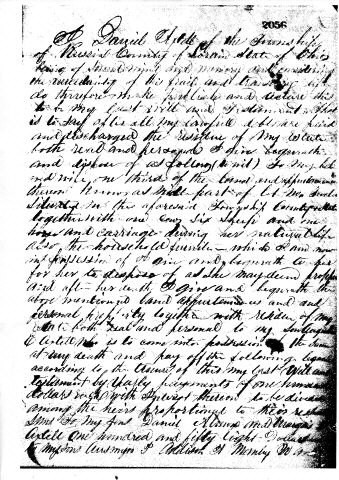 2056
I Daniel Axtell of the Township
of Russia County of Lorain State of Ohio
being of Sound mind and memory and considering
the uncertainty of this frail and transitory life
do therefore make publish and declare this
to be my Last will and Testament that
is to say after all my lawfull debts are paid
and discharged the residue of my estate
both real and personal I give bequeath
and dispose of as follows to wit To my belo
ved wife one third of the land and appurtenances
thereon known as part of lot
Situated in the aforesaid Township County and State
together with one cow six sheep and one
horse and carriage during her natural life
also the household furniture which I am now
in possession of I give and bequeath to for
for her to dispose of as she may deem proper
and after her death I give and bequeath the
above mentioned land appurtenances and said
personal property together with residue of my
Estate both real and personal to my
Axtell who is to come into possession of the same
at my death and pay off the following
according to the tenure of this my Last will and
testament by yearly payments of one hundred
dollars each with Interest thereon to be divided
among the heirs proportional to their
To my sons Daniel
Axtell one hundred and fifty eight Dollars
to my sons Addison H Manly